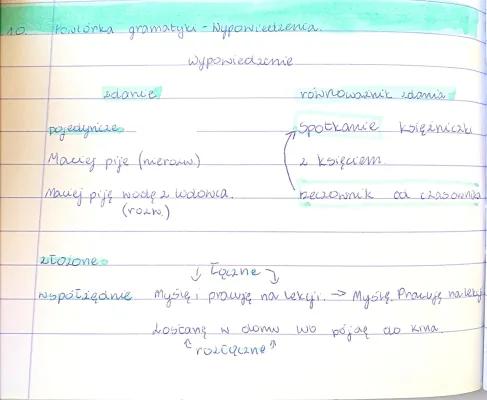 10. Powtórka gramatyki - Wypowiedzenia.
Wypowiedzenie
zdanie
równoważnik zdania
pojedyncze
Spotkanie księżniczki
Maciej pije (nierozw.)
z księciem.
Maciej piję wodę z lodowca.
rzeczownik od czasownika
(rozw.)
złożone
łączne
współrzędnie Myślę i pracuję na lekcji. → Myślę. Pracuję na lekcji
Zostanę w domu lub pójdę do kina.
rozłączne